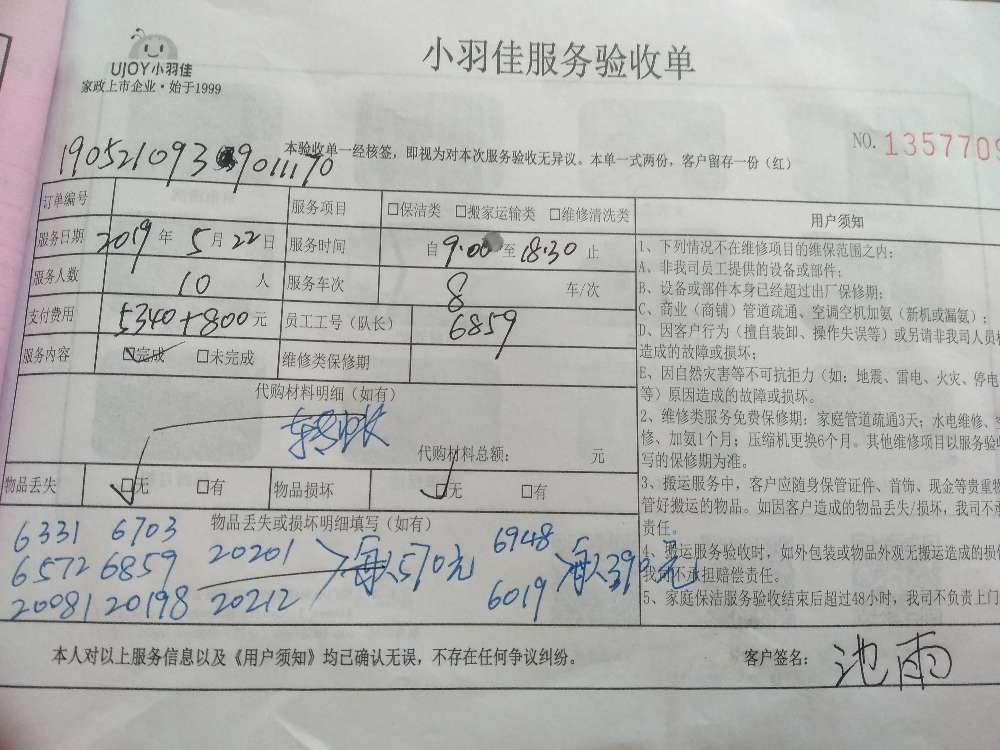 UJOY小羽佳
家政上市企业·始于1999
小羽佳服务验收单
NO. 1357709
190521093 9011170
本验收单一经核签，即视为对本次服务验收无异议。本单一式两份，客户留存一份（红）
订单编号 服务项目 □保洁类 □搬家运输类 □维修清洗类
服务日期 2019 年 5 月 22 日 服务时间 自 9:00 至 18:30 止
服务人数 10 人 服务车次 8 车/次
支付费用 5340+800 元 员工工号（队长） 6859
服务内容 □完成 □未完成 维修类保修期
代购材料明细（如有）
代购材料总额： 元
物品丢失 □无 □有 物品损坏 □无 □有
物品丢失或损坏明细填写（如有）
6331 6703
6572 6859 20201 每人570元 6948 每人390元
20081 20198 20212 6019
用户须知
1、下列情况不在维修项目的维保范围之内：
A、非我司员工提供的设备或部件；
B、设备或部件本身已经超过出厂保修期；
C、商业（商铺）管道疏通、空调空机加氨（新机或漏氨）；
D、因客户行为（擅自装卸、操作失误等）或另请非我司人员
造成的故障或损坏；
E、因自然灾害等不可抗拒力（如：地震、雷电、火灾、停电
等）原因造成的故障或损坏。
2、维修类服务免费保修期：家庭管道疏通3天；水电维修、
修、加氨1个月；压缩机更换6个月。其他维修项目以服务验收
写的保修期为准。
3、搬运服务中，客户应随身保管证件、首饰、现金等贵重物
管好搬运的物品。如因客户造成的物品丢失/损坏，我司不承
责任。
4、搬运服务验收时，如外包装或物品外观无搬运造成的损
我司不承担赔偿责任。
5、家庭保洁服务验收结束后超过48小时，我司不负责上门
本人对以上服务信息以及《用户须知》均已确认无误，不存在任何争议纠纷。
客户签名： 池雨